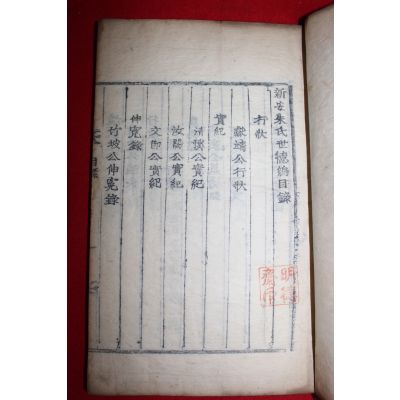 新安朱氏世德錄目錄
行狀
公行狀
實紀
清溪公實紀
汝陽公實紀
文節公實紀
伸寃錄
竹坡公伸寃錄
目錄
明